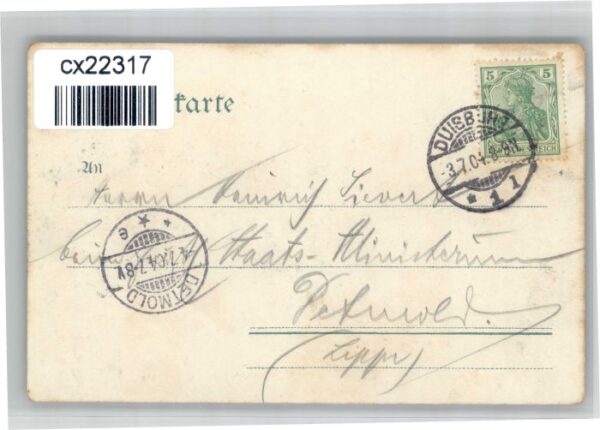 cx22317
karte
5 5
REICH
DUISBURG
-3.7.04.8-9N.
* 1 1
An
Herrn Heinrich Sievert
beim Staats-Ministerium
Detmold.
(Lippe)
* * e
4.7.04.7-8V.
DETMOLD